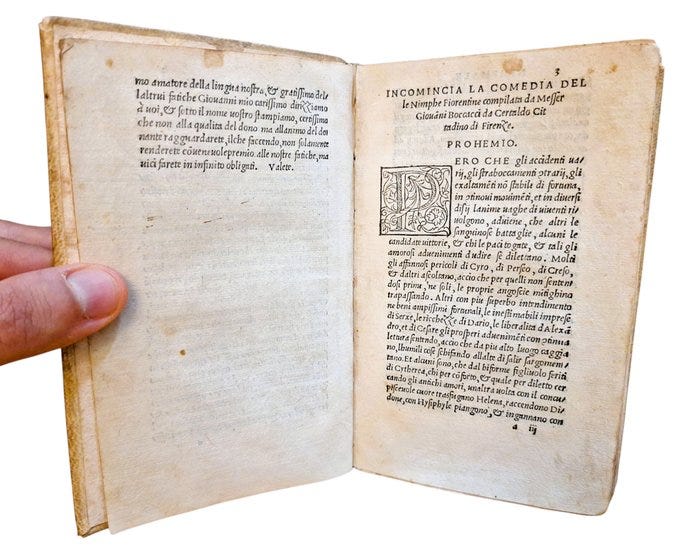 mo amatore della lingua nostra, & gratissimo del
l'altrui fatiche Giouanni mio carissimo dirizziamo
à uoi, & sotto il nome uostro stampiamo, certissimi
che non alla qualita del dono ma all'animo del do
nante ragguardarete, ilche faccendo, non solamente
renderete cõueneuole premio alle nostre fatiche, ma
uici farete in infinito obligati. Valete.
3
INCOMINCIA LA COMEDIA DEL
le Nimphe Fiorentine compilata da Messer
Giouãni Boccacci da Certaldo Cit
tadino di Firenze.
PROHEMIO.
PERO CHE gli accidenti ua
rij, gli straboccamenti cõtrarij, gli
exaltamẽti nõ stabile di fortuna,
in cõtinoui mouimẽti, et in diuersi
disij lanime uaghe di uiuenti ri
uolgono, aduiene, che altri le
sanguinose battaglie, alcuni le
candidate uittorie, & chi le paci togate, & tali gli
amorosi aduenimenti d'udire se diletano. Molti
gli affannosi pericoli di Cyro, di Perseo, di Creso,
& d'altri ascoltano, accio che per quelli non senten
dosi primi, ne soli, le proprie angoscie mitighino
trapassando. Altri con piu superbo intendimento
ne beni ampissimi fortunali, le inestimabili imprese
di Serxe, le ricchezze di Dario, le liberalita d'Alexã
dro, et di Cesare gli prosperi aduenimenti cõ cõtinua
lettura sentẽdo, accio che da piu alto luogo caggia
no, l'humili cose schifando all'alte di salir s'argomen
tano. Et alcuni sono, che dal biforme figliuolo feriti
di Cytherea, chi per cõforto, & quale per diletto cer
cando gli antichi amori, un'altra uolta con il concu
pisceuole cuore trasfugano Helena, raccendono Di
done, con Hysiphyle piangono, & ingannano con
a iij